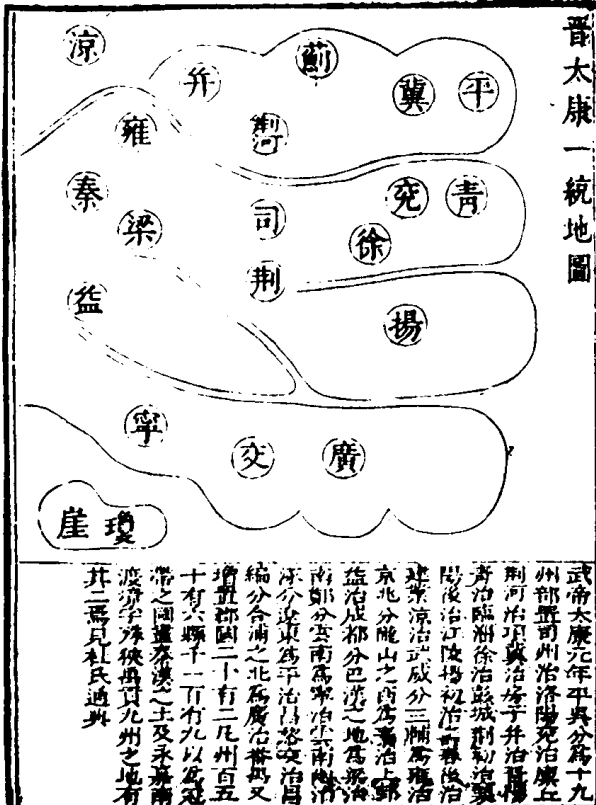 晉太康一統地圖
涼
并
薊
冀
平
雍
荊河
秦
梁
司
兗
青
徐
荊
益
揚
寧
交
廣
瓊崖
武帝太康元年平吳分爲十九
州部置司州治洛陽兗治廩丘
荆河治項冀治房子并治晉陽
青治臨淄徐治彭城荆初治襄
陽後治江陵揚初治壽春後治
建業涼治武威分三輔爲雍治
京兆分隴山之西爲秦治上邽
益治成都分巴漢之地爲梁治
南鄭分雲南爲寧治雲南幽治
涿分遼東爲平治昌黎交治
編分合浦之北爲廣治番禺又
增置郡國二十有二凡州百五
十有六縣千一百有九以爲冠
帶之國盡秦漢之土及永嘉南
渡字殊狹禹貢九州之地有
其二焉見杜氏通典